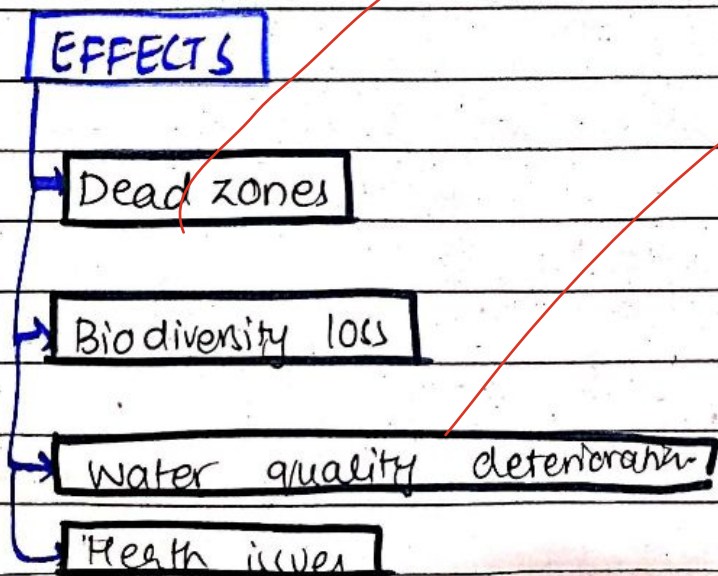 EFFECTS
Dead zones
Biodiversity loss
Water quality deterioration
Health issues